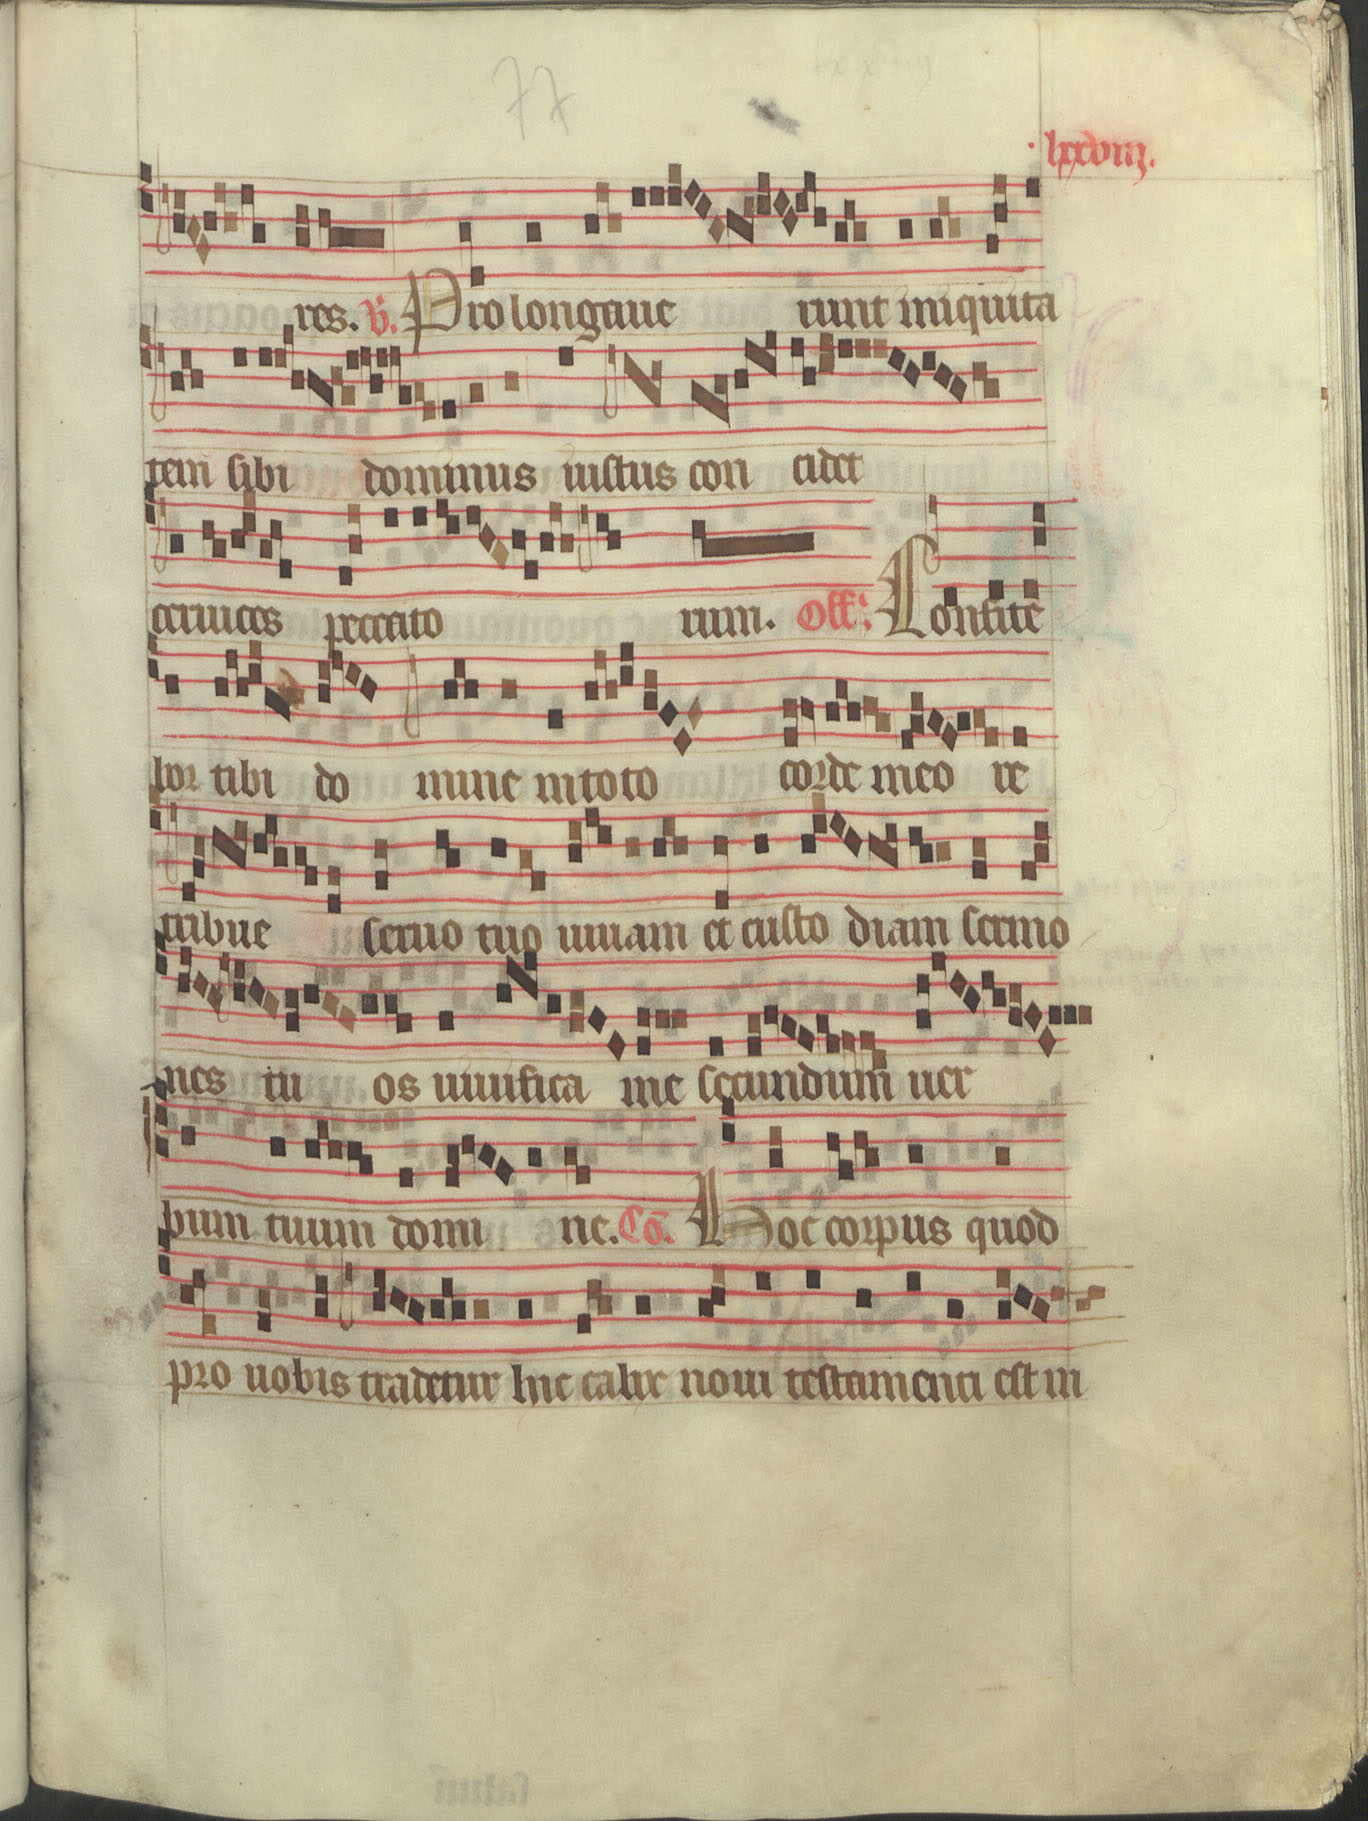 77
lxxviij.
res. V. Prolongaue runt iniquita
tem sibi dominus iustus con cidet
ceruices peccato rum. Off. Confite
bor tibi do mine in toto corde meo re
tribue seruo tuo uiuam et custo diam sermo
nes tu os uiuifica me secundum uer
bum tuum domi ne. Co. Hoc corpus quod
pro uobis tradetur hic calix noui testamenti est in